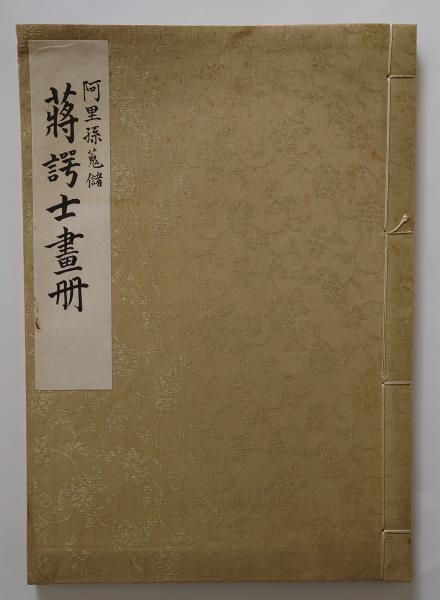 阿里孫蒐儲
蔣諤士畫册